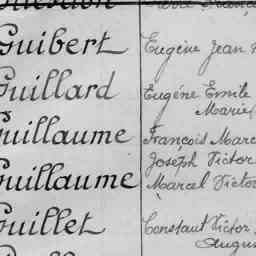 Guibert Eugène Jean
Guillard Eugène Emile
Marie
Guillaume François Marc
Joseph Victor
Guillaume Marcel Victo
Guillet Constant Victor
Augus